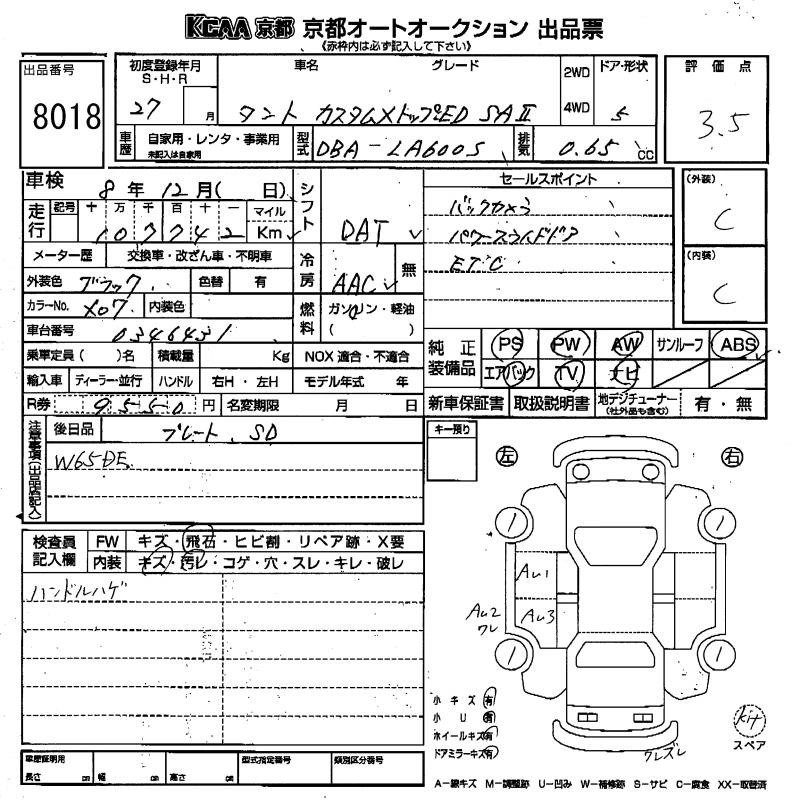 KCAA 京都 京都オートオークション 出品票
《赤枠内は必ず記入して下さい》
出品番号
8018
初度登録年月
S・H・R
27 月
車名
グレード
タント カスタムXトップED SAⅡ
2WD
4WD
ドア・形状
5
評価点
3.5
車歴
自家用・レンタ・事業用
未記入は自家用
型式
DBA-LA600S
排気
0.65 CC
車検
8年 12月( 日)
シフト
DAT
走行
記号 十 万 千 百 十 一 マイル
107742 Km
メーター歴
交換車・改ざん車・不明車
冷房
AAC
無
外装色
ブラック
色替
有
カラーNo.
X07
内装色
燃料
ガソリン・軽油
( )
車台番号
0346431
乗車定員( )名
積載量
Kg
NOX 適合・不適合
輸入車
ディーラー・並行
ハンドル
右H・左H
モデル年式 年
R券
9550 円
名変期限 月 日
セールスポイント
バックカメラ
パワースライドドア
ETC
(外装)
C
(内装)
C
純正装備品
PS PW AW サンルーフ ABS
エアバック TV ナビ
新車保証書
取扱説明書
地デジチューナー
(社外品も含む)
有・無
注意事項(出品店記入)
後日品
プレート、SD
W65DE
キー預り
左
右
検査員記入欄
FW
キズ・飛石・ヒビ割・リペア跡・X要
内装
キズ・汚レ・コゲ・穴・スレ・キレ・破レ
ハンドルハゲ
Au1
Au2
ワレ
Au3
小キズ 有
小U 有
ホイールキズ 有
ドアミラーキズ 有
ワレズレ
kit
スペア
車歴証明用
長さ cm
幅 cm
高さ cm
型式指定番号
類別区分番号
A−線キズ M−調整跡 U−凹み W−補修跡 S−サビ C−腐食 XX−取替済